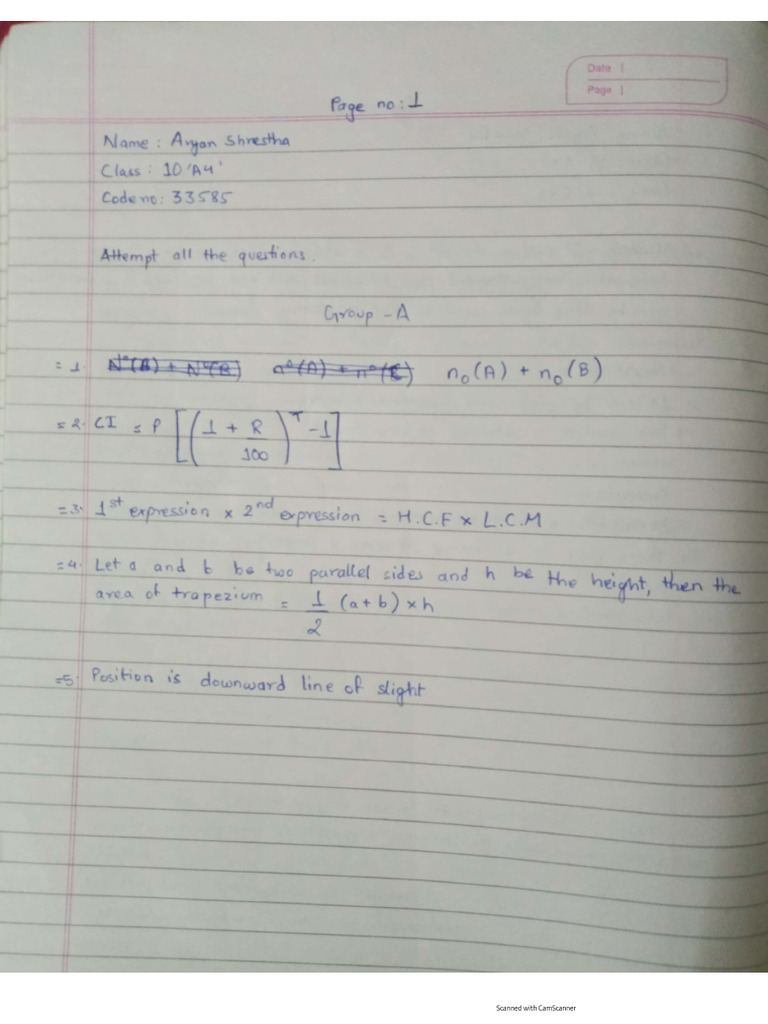 Date
Page
Page no: 1
Name: Aryan Shrestha
Class: 10 'A4'
Code no: 33585
Attempt all the questions.
Group - A
= 1. N°(A) + N°(B) n°(A) + n°(B) n₀(A) + n₀(B)
= 2. CI = P [(1 + R/100)ᵀ - 1]
= 3. 1st expression × 2nd expression = H.C.F × L.C.M
= 4. Let a and b be two parallel sides and h be the height, then the
area of trapezium = 1/2 (a + b) × h
= 5. Position is downward line of slight
Scanned with CamScanner